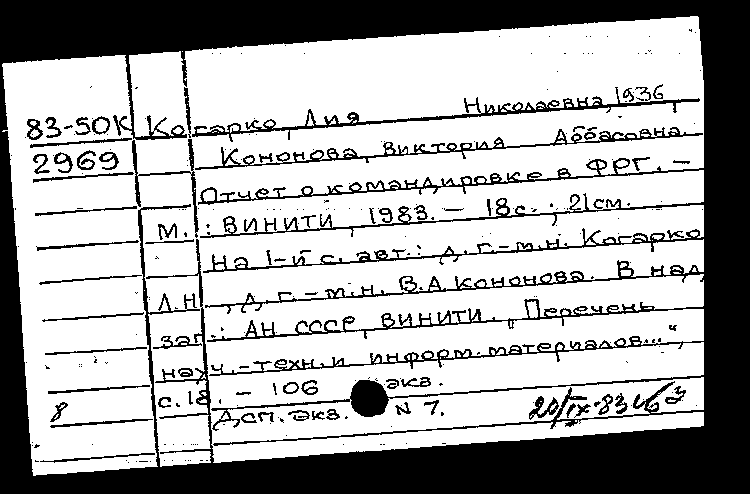 83-50К Когарко, Лия Николаевна, 1936,
2969 Кононова, Виктория Аббасовна
Отчет о командировке в ФРГ. –
М.: ВИНИТИ, 1983. – 18с.; 21см.
На 1-й с. авт.: д.г.-м.н. Когарко
Л.Н., д.г.-м.н. В.А. Кононова. В над
заг.: АН СССР, ВИНИТИ. "Перечень
науч.-техн. и информ. материалов...",
с.18. – 106 экз.
8 Д,сп. экз. N 7. 20/IX-83